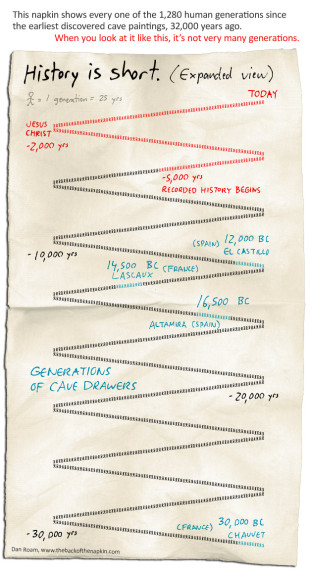 This napkin shows every one of the 1,280 human generations since
the earliest discovered cave paintings, 32,000 years ago.
When you look at it like this, it's not very many generations.
History is short. (Expanded view)
= 1 generation = 25 yrs
TODAY
JESUS
CHRIST
-2,000 yrs
-5,000 yrs
RECORDED HISTORY BEGINS
(SPAIN) 12,000 BC
EL CASTILLO
-10,000 yrs
14,500 BC (FRANCE)
LASCAUX
16,500 BC
ALTAMIRA (SPAIN)
GENERATIONS
OF CAVE DRAWERS
-20,000 yrs
(FRANCE) 30,000 BC
CHAUVET
-30,000 yrs
Dan Roam, www.thebackofthenapkin.com